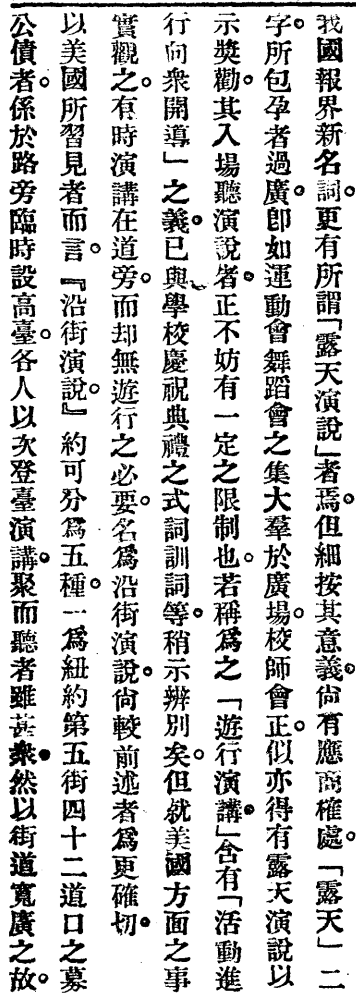 我國報界新名詞。更有所謂「露天演說」者焉。但細按其意義。尚有應商榷處。「露天」二
字。所包孕者過廣。卽如運動會舞蹈會之集大羣於廣場。校師會正。似亦得有露天演說以
示獎勸。其入場聽演說者。正不妨有一定之限制也。若稱爲之「遊行演講。」含有「活動進
行向衆開導」之義。已與學校慶祝典禮之式詞訓詞等。稍示辨別矣。但就美國方面之事
實觀之。有時演講在道旁。而却無遊行之必要。名爲沿街演說。尙較前述者爲更確切。
以美國所習見者而言。『沿街演說。』約可分爲五種。一爲紐約第五街四十二道口之募
公債者。係於路旁臨時設高臺。各人以次登臺演講。聚而聽者雖甚衆。然以街道寬廣之故。